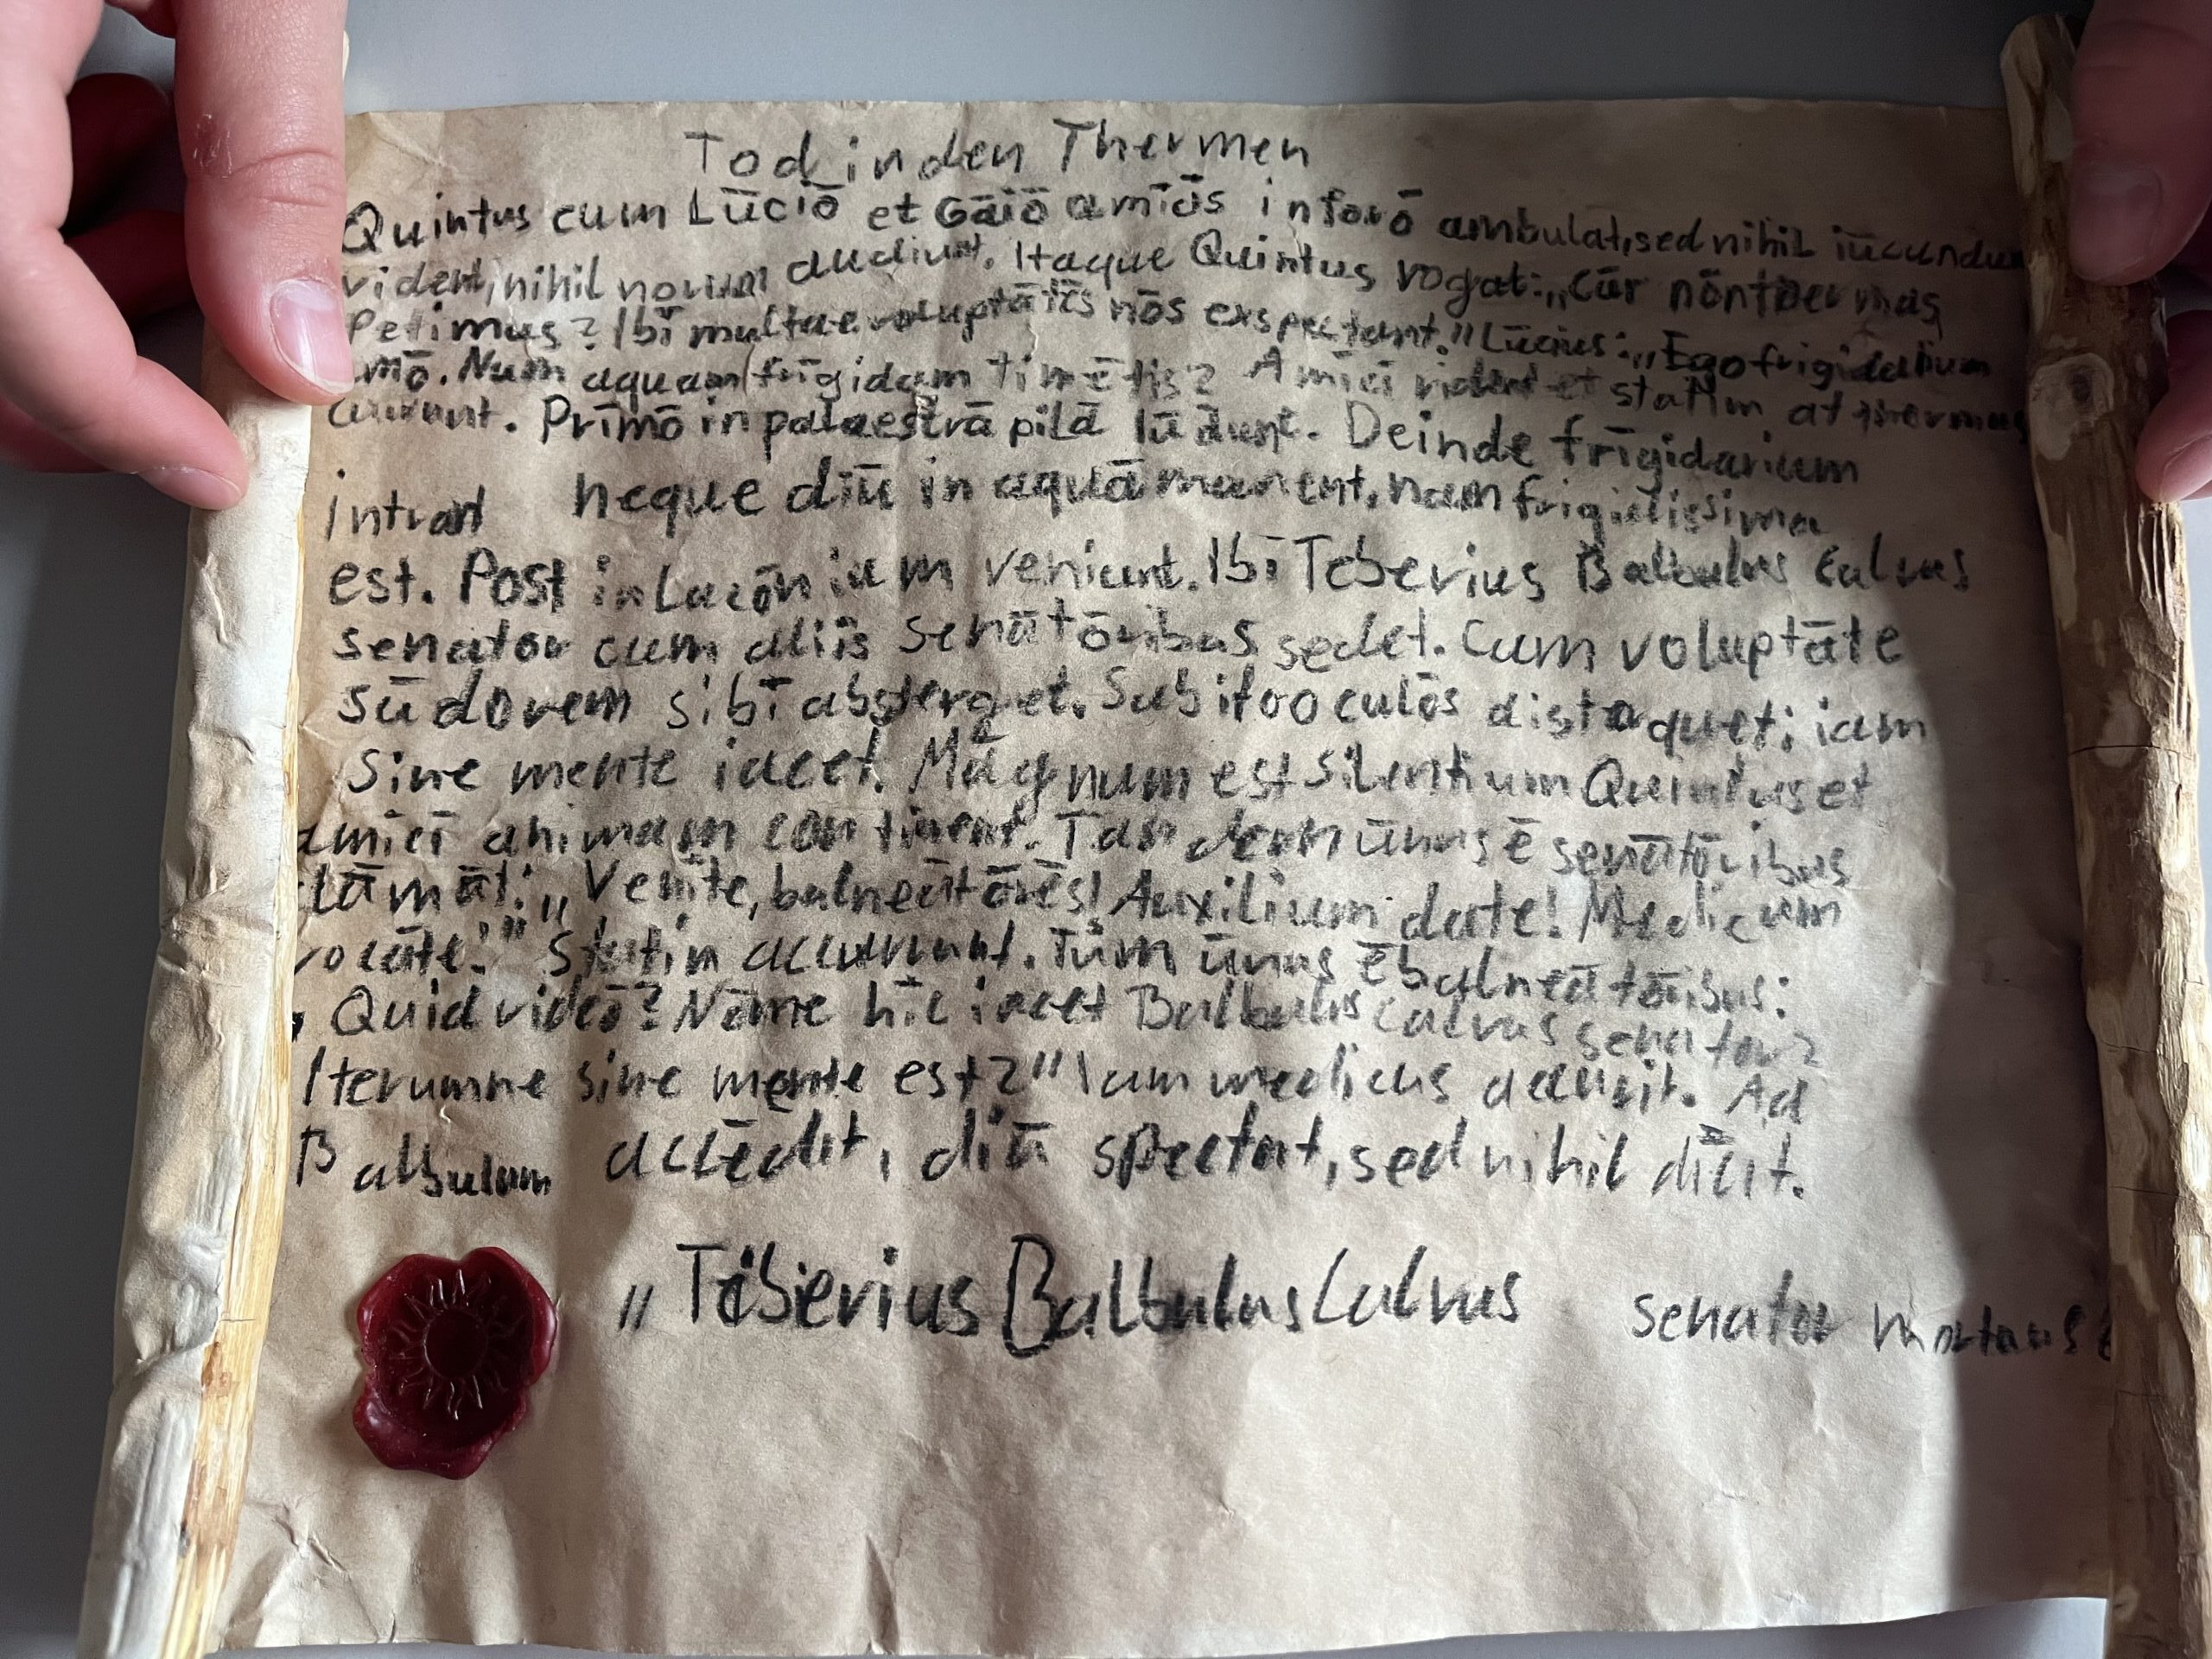 Tod in den Thermen
Quintus cum Lūciō et Gāiō amīcīs in forō ambulat, sed nihil iūcundum
vident, nihil novum audiunt. Itaque Quintus rogat: „Cūr nōn thermas
Petimus? Ibī multae voluptātēs nōs exspectant." Lūcius: „Ego frigidarium
amō. Num aquam frīgidam timētis? Amīcī rident et statim at thermas
currunt. Prīmō in palaestrā pilā lūdunt. Deinde frīgidarium
intrant neque diū in aquā manent, nam frigidissima
est. Post in Lacōnicum veniunt. Ibī Teberius Balbulus Calvus
senator cum aliīs senātōribus sedet. Cum voluptāte
sūdorem sibī absterget. Subito oculōs distorquet; iam
sine mente iacet. Māgnum est silentium Quintus et
amīcī animam continent. Tandem ūnus ē senātōribus
clāmāt: „Venīte, balneātōrēs! Auxilium date! Medicum
vocāte!" Statim accurrunt. Tum ūnus ē balneātōribus:
„Quid videō? Nōnne hīc iacet Balbulus Calvus senator?
Iterumne sine mente est?" Iam medicus accurrit. Ad
Balbulum accēdit, diū spectat, sed nihil dīcit.
„Teberius Balbulus Calvus senator mortuus